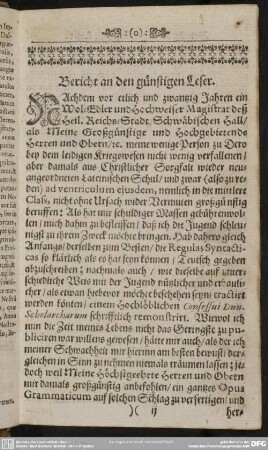 (0)
Bericht an den günstigen Leser.
NAchdem vor etlich und zwantzig Jahren ein
Wol-Edler und Hochweiser Magistrat deß
Heil. Reichs-Stadt Schwäbischen Hall/
als Meine Großgünstige und Hochgebietende
Herren und Obern/ꝛc. meine wenige Person zu Dero
bey dem leidigen Kriegswesen nicht wenig verfallenen/
aber damals aus Christlicher Sorgfalt wieder neu-
angeordneten Lateinischen Schul/ und zwar (also zu re-
den) ad ventriculum ejusdem, nemlich in die mittlere
Class, nicht ohn Ursach wider Vermuten großgünstig
beruffen: Als hat mir schuldiger Massen gebühren wol-
len/ mich dahin zu befleissen/ daß ich die Jugend schleu-
nigst zu ihrem Zweck möchte bringen. Hab dahero gleich
Anfangs/ derselben zum Besten/ die Regulas Syntacti-
cas so klärlich als es hat seyn können/ Teutsch gegeben
abzuschreiben; nachmals auch/ wie dieselbe auf unter-
schiedliche Weis mit der Jugend nützlicher und erbauli-
cher/ als etwan bißhero möchte beschehen seyn/ tractirt
werden könten/ einem Hochlöblichen Consessui Dnn.
Scholarcharum schrifftlich remonstrirt. Wiewol ich
nun die Zeit meines Lebens nicht das Geringste zu pu-
bliciren war willens gewesen/ hätte mir auch/ als der ich
meiner Schwachheit mir hierinn am besten bewust/ der-
gleichen in Sinn zu nehmen niemals träumen lassen; je-
doch weil Meine Höchstgeehrte Herren und Obern
mir damals großgünstig anbefohlen/ ein gantzes Opus
Grammaticum auf solchen Schlag zu verfertigen/ und
)( ij her-